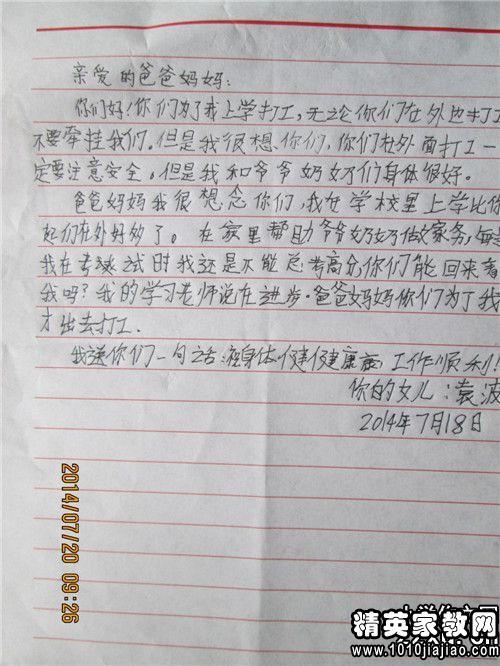 亲爱的爸爸妈妈:
你们好!你们为了我上学打工,无论你们在外边打工
不要牵挂我们。但是我很想你们,你们在外面打工一
定要注意安全。但是我和爷爷奶奶们身体很好。
爸爸妈妈我很想念你们,我在学校里上学比你
们在外好多了。在家里帮助爷爷奶奶做家务,每
我在考试时我还是不能总考高分,你们能回来看
我吗?我的学习老师说在进步。爸爸妈妈你们为了我
才出去打工.
我送你们一句话:身体健健康康,工作顺利!
你的女儿:袁波
2014年7月18日
2014/07/20 09:26
精英家教网
www.1010jiajiao.com